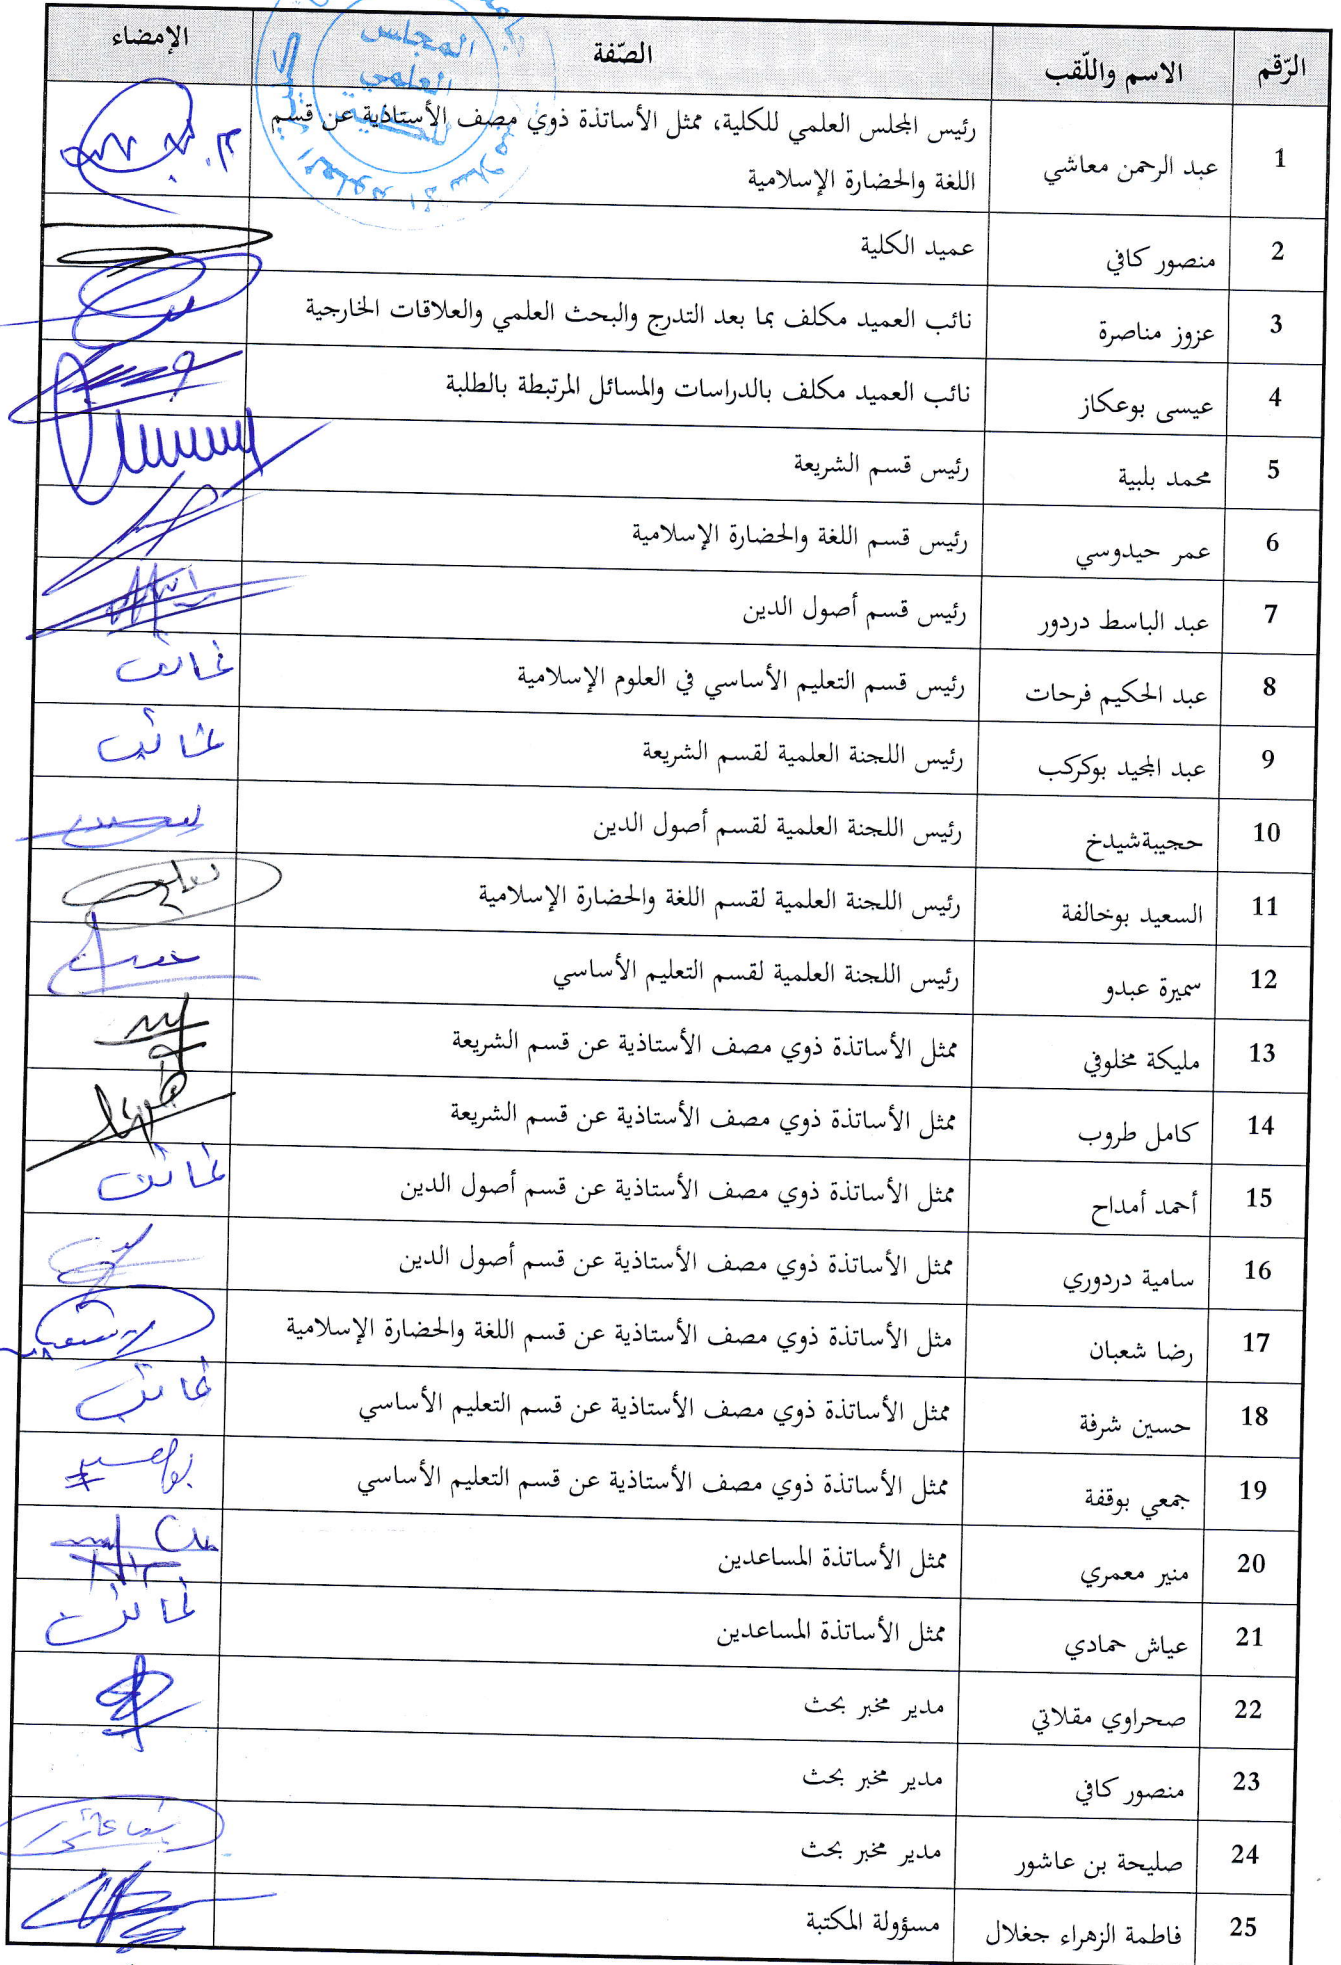 الرّقم الاسم واللّقب الصّفة الإمضاء
المجلس
العلمي
للكلية
1 عبد الرحمن معاشي رئيس المجلس العلمي للكلية، ممثل الأساتذة ذوي مصف الأستاذية عن قسم
اللغة والحضارة الإسلامية
2 منصور كافي عميد الكلية
3 عزوز مناصرة نائب العميد مكلف بما بعد التدرج والبحث العلمي والعلاقات الخارجية
4 عيسى بوعكاز نائب العميد مكلف بالدراسات والمسائل المرتبطة بالطلبة
5 محمد بلبية رئيس قسم الشريعة
6 عمر حيدوسي رئيس قسم اللغة والحضارة الإسلامية
7 عبد الباسط دردور رئيس قسم أصول الدين
8 عبد الحكيم فرحات رئيس قسم التعليم الأساسي في العلوم الإسلامية غائب
9 عبد المجيد بوكركب رئيس اللجنة العلمية لقسم الشريعة غائب
10 حجيبةشيدخ رئيس اللجنة العلمية لقسم أصول الدين
11 السعيد بوخالفة رئيس اللجنة العلمية لقسم اللغة والحضارة الإسلامية
12 سميرة عبدو رئيس اللجنة العلمية لقسم التعليم الأساسي
13 مليكة مخلوفي ممثل الأساتذة ذوي مصف الأستاذية عن قسم الشريعة
14 كامل طروب ممثل الأساتذة ذوي مصف الأستاذية عن قسم الشريعة
15 أحمد أمداح ممثل الأساتذة ذوي مصف الأستاذية عن قسم أصول الدين غائب
16 سامية دردوري ممثل الأساتذة ذوي مصف الأستاذية عن قسم أصول الدين
17 رضا شعبان مثل الأساتذة ذوي مصف الأستاذية عن قسم اللغة والحضارة الإسلامية
18 حسين شرفة ممثل الأساتذة ذوي مصف الأستاذية عن قسم التعليم الأساسي غائب
19 جمعي بوقفة ممثل الأساتذة ذوي مصف الأستاذية عن قسم التعليم الأساسي
20 منير معمري ممثل الأساتذة المساعدين
21 عياش حمادي ممثل الأساتذة المساعدين غائب
22 صحراوي مقلاتي مدير مخبر بحث
23 منصور كافي مدير مخبر بحث
24 صليحة بن عاشور مدير مخبر بحث
25 فاطمة الزهراء جغلال مسؤولة المكتبة